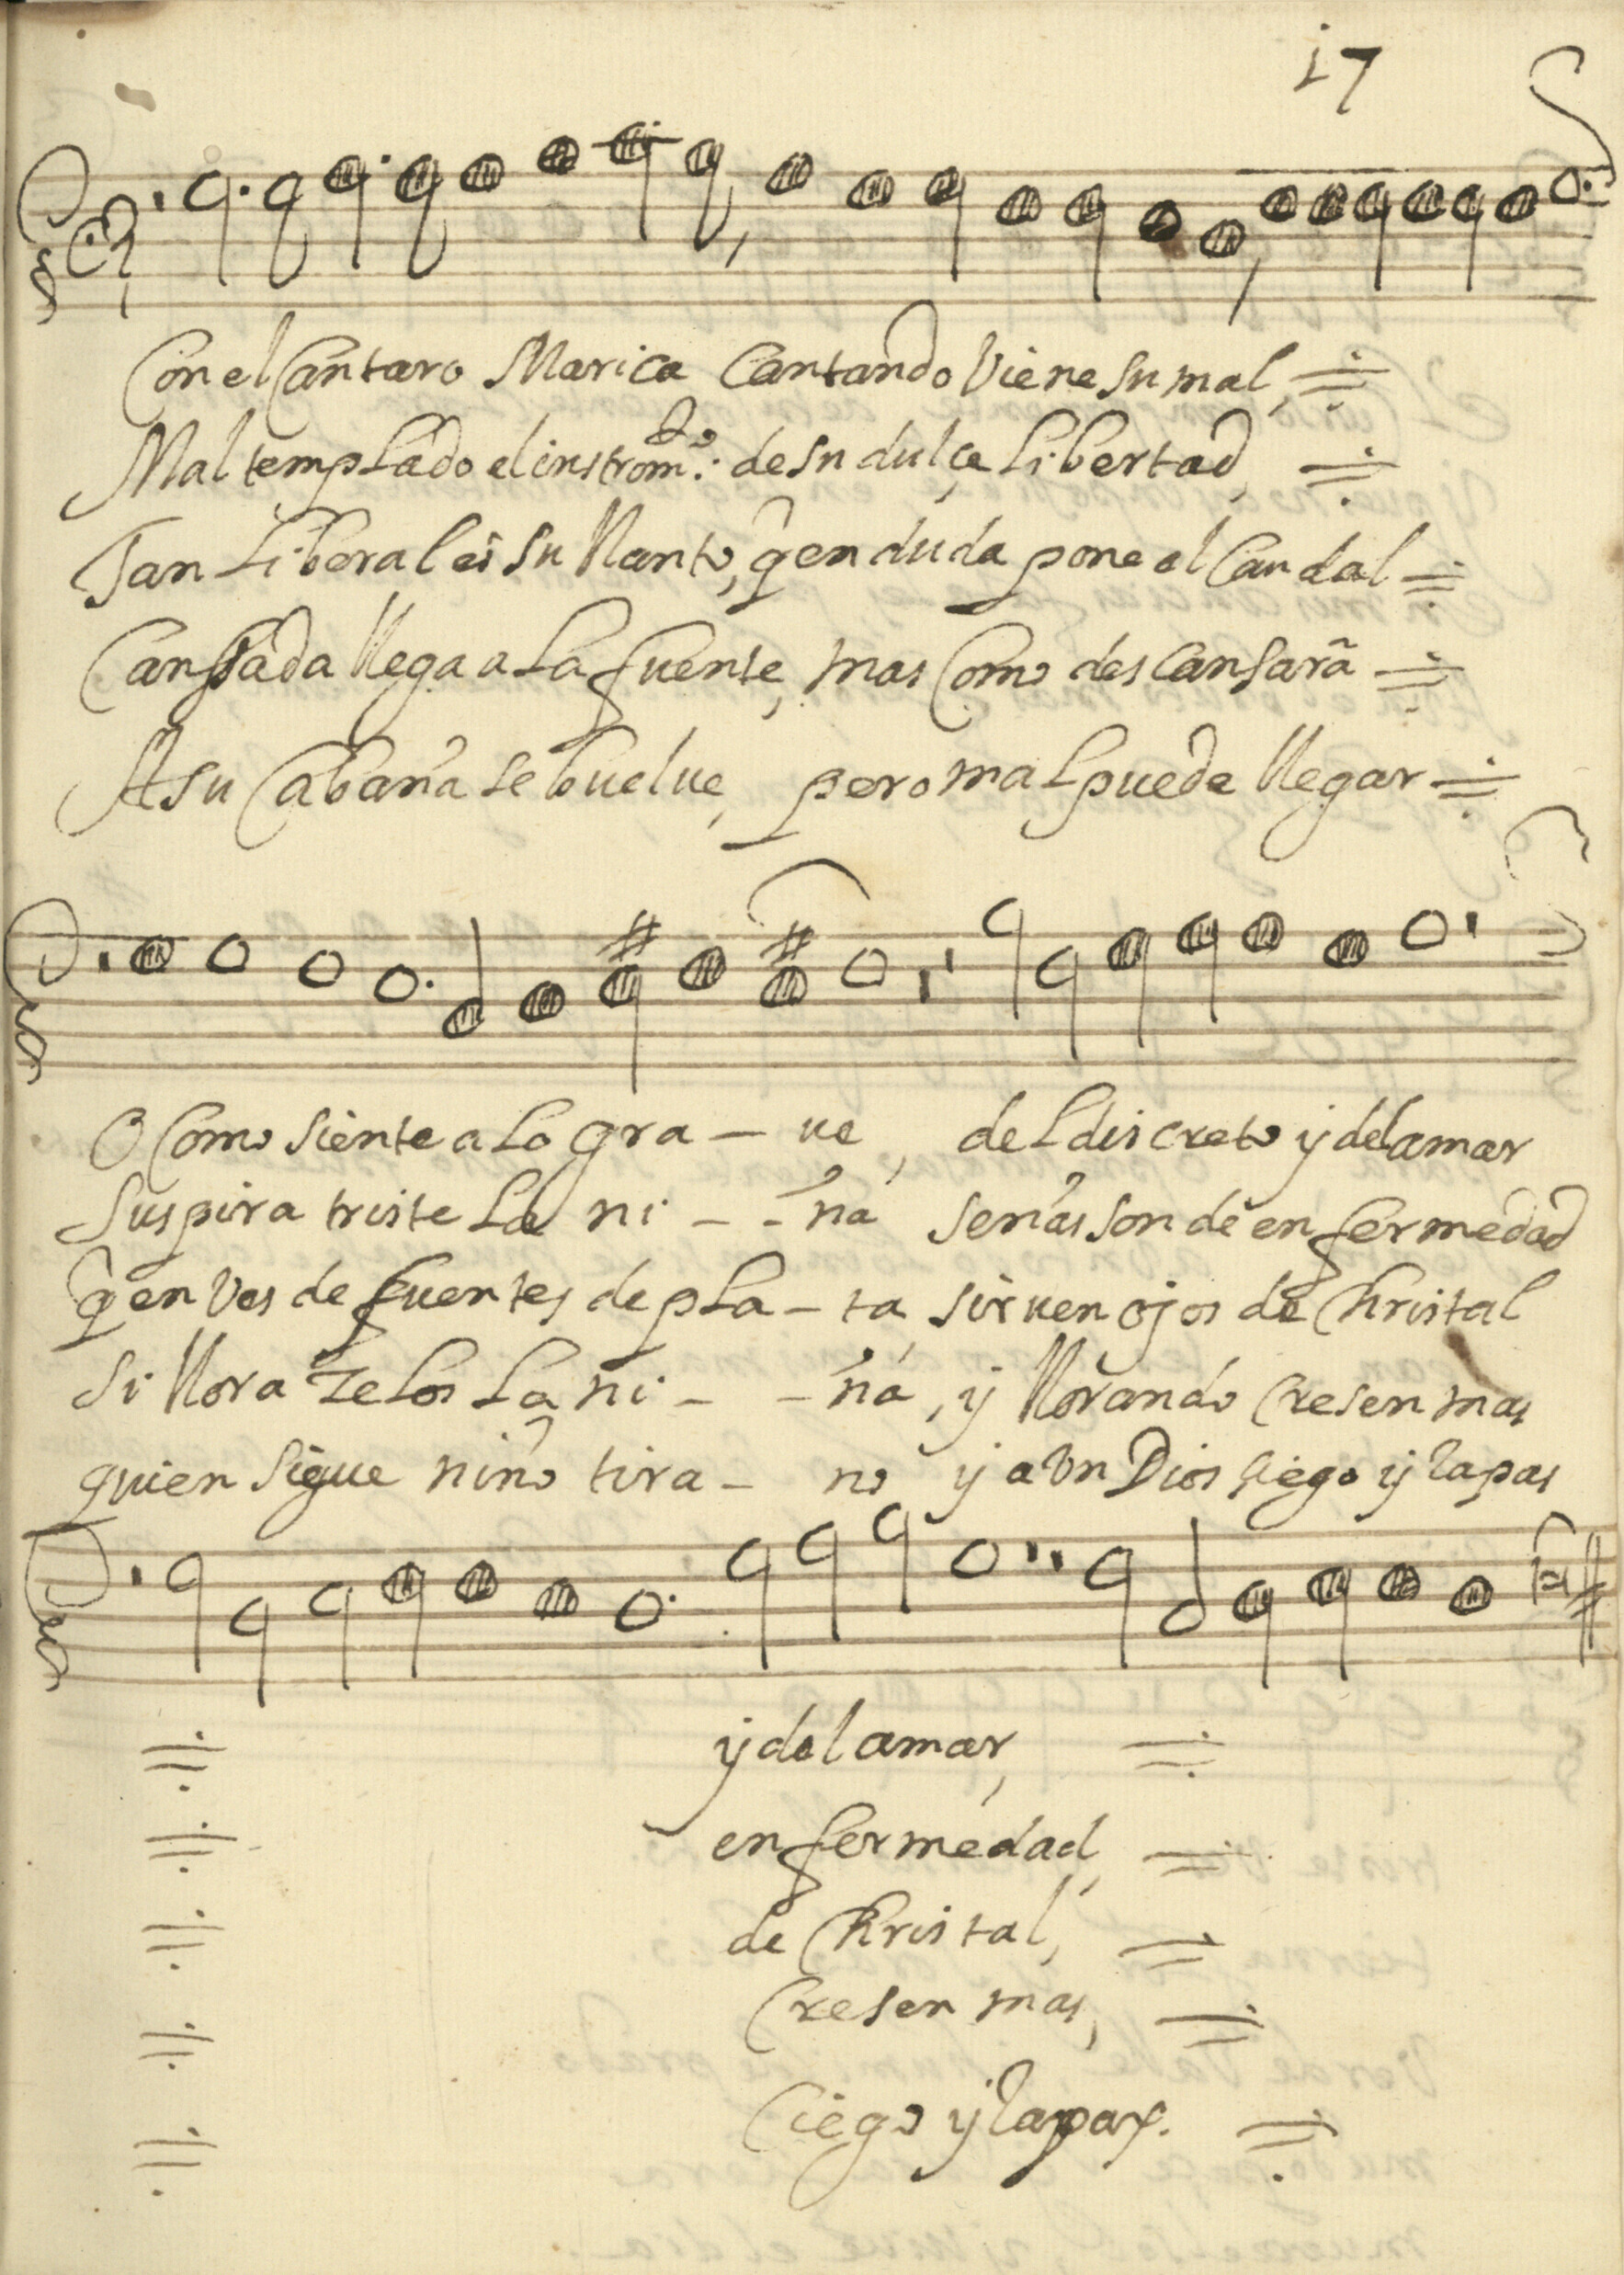 17
Con el Cantaro Marica Cantando Viene su mal,
Mal templado el instromto. de su dulçe Libertad,
Tan Liberal es su llanto, q̃ en duda pone el Caudal
Cansada llega a La fuente, mas Como descansarã
A su Cabaña se buelue, pero mal puede llegar
O Como siente a Lo gra - ue, del discreto ÿ del amar
Suspira triste La ni - - ña señas son de enfermedad
q̃ en Ves de fuentes de pLa - ta siruen ojos de Christal
Si llora Zelos La ni - - ña, ÿ llorando Cresen mas
quien sigue niño tira - no ÿ a Vn Dios Çiego ÿ rapas
ÿ del amar,
enfermedad,
de Christal,
Cresen mas,
Ciego ÿ rapax.